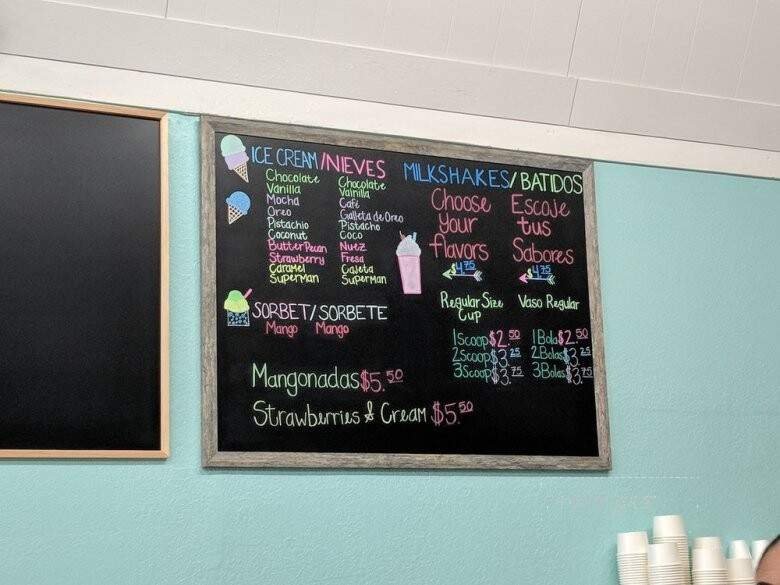 ICE CREAM/NIEVES
Chocolate
Vanilla
Mocha
Oreo
Pistachio
Coconut
Butter Pecan
Strawberry
Caramel
Superman
Chocolate
Vainilla
Café
Galleta de Oreo
Pistacho
Coco
Nuez
Fresa
Cajeta
Superman
SORBET/SORBETE
Mango Mango
Mangonadas $5.50
Strawberries & Cream $5.50
MILKSHAKES/BATIDOS
Choose
your
flavors
$4.75
Escoje
tus
Sabores
$4.75
Regular Size
Cup
1 Scoop $2.50
2 Scoop $3.25
3 Scoop $3.75
Vaso Regular
1 Bola $2.50
2 Bolas $3.25
3 Bolas $3.75